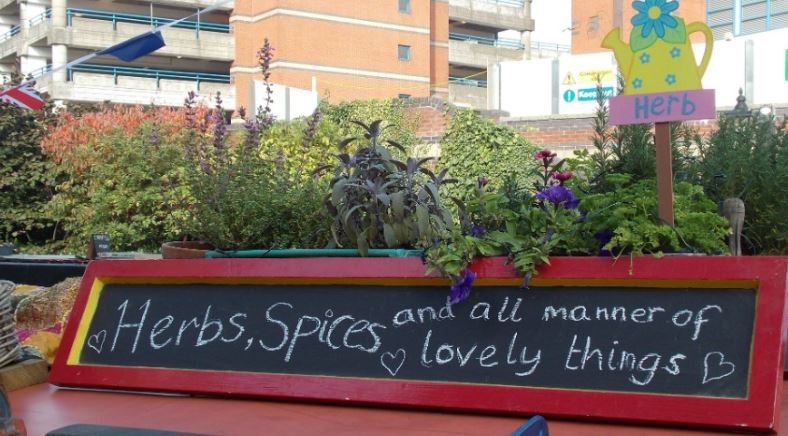 Herb
Keep out
Herbs, Spices and all manner of
lovely things